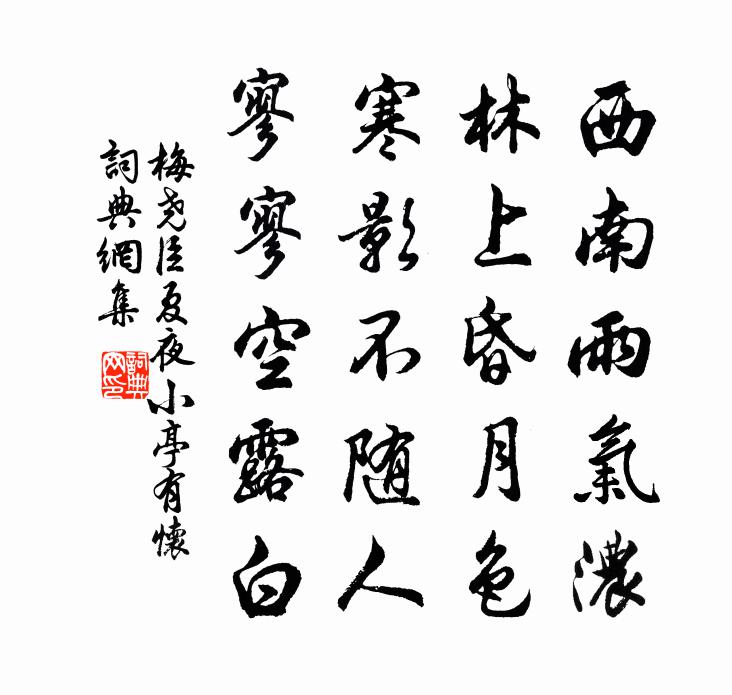 西南雨氣濃
林上昏月色
寒影不随人
寥寥空露白
梅尧臣夏夜小亭有懷
詞典網集
詞典网印